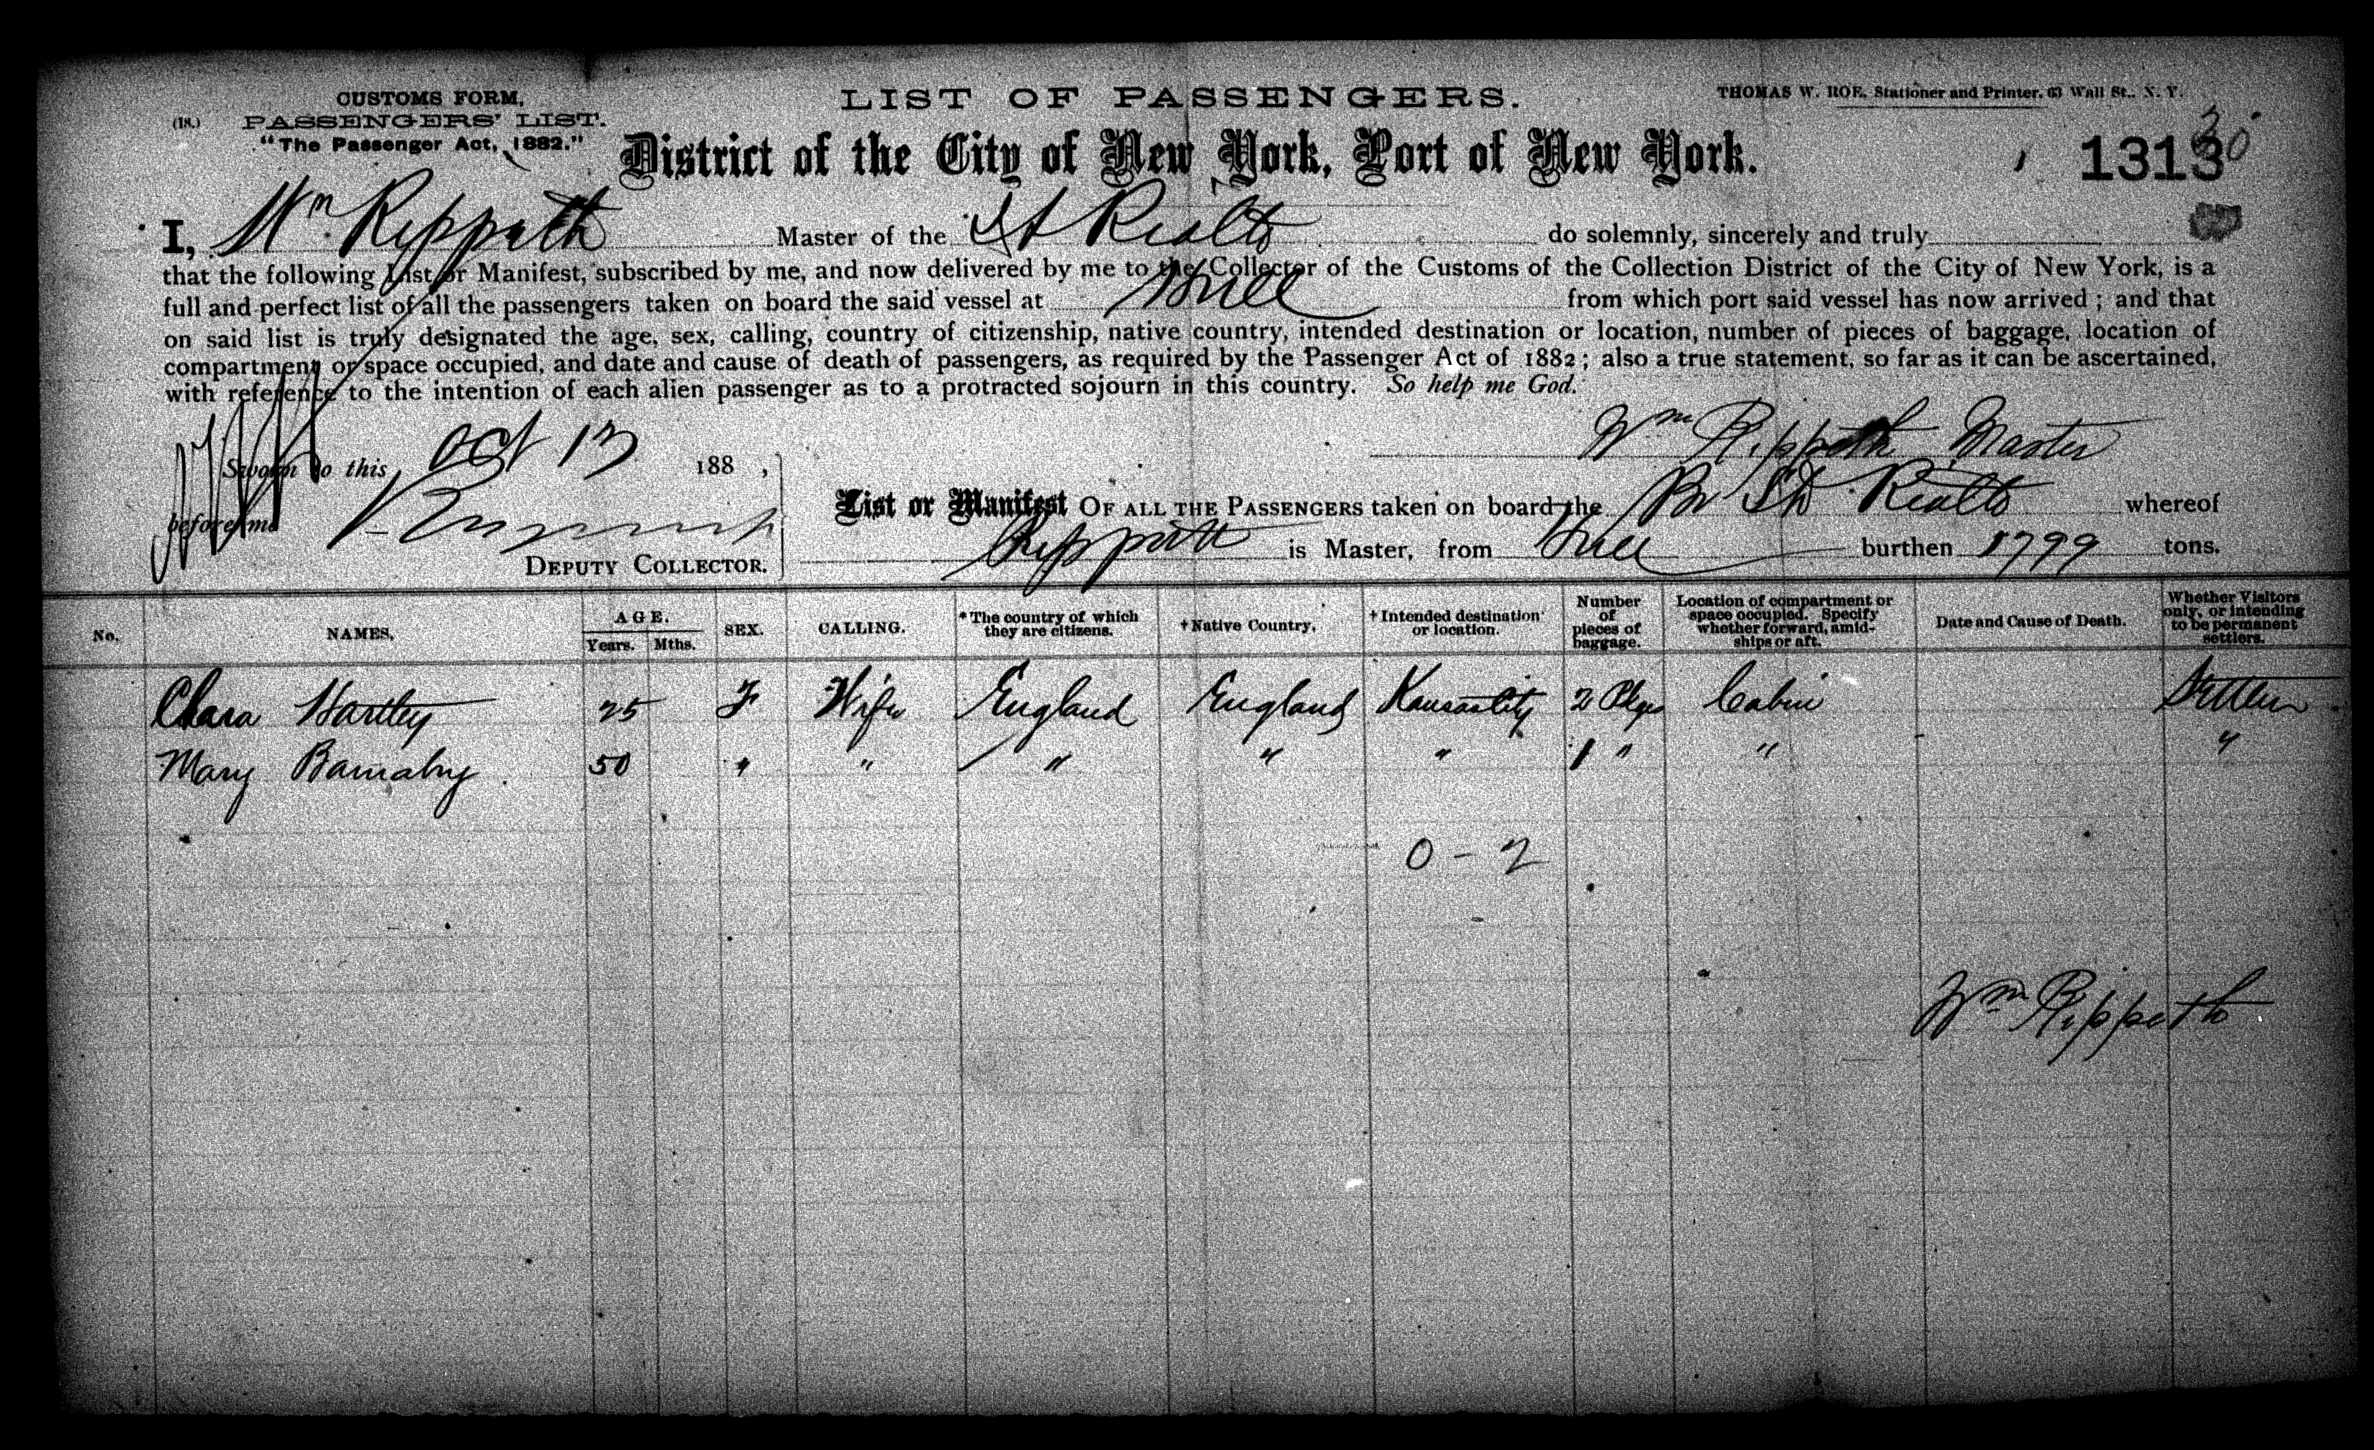 CUSTOMS FORM.
(18.) PASSENGERS' LIST.
"The Passenger Act, 1882."
LIST OF PASSENGERS.
THOMAS W. ROE, Stationer and Printer, 63 Wall St., N. Y.
District of the City of New York, Port of New York.
1313
30
I, Wm Rippeth Master of the Rialto do solemnly, sincerely and truly
that the following List or Manifest, subscribed by me, and now delivered by me to the Collector of the Customs of the Collection District of the City of New York, is a
full and perfect list of all the passengers taken on board the said vessel at Hull from which port said vessel has now arrived; and that
on said list is truly designated the age, sex, calling, country of citizenship, native country, intended destination or location, number of pieces of baggage, location of
compartment or space occupied, and date and cause of death of passengers, as required by the Passenger Act of 1882; also a true statement, so far as it can be ascertained,
with reference to the intention of each alien passenger as to a protracted sojourn in this country. So help me God.
Wm Rippeth Master
Sworn to this Oct 13 188 ,
before me
DEPUTY COLLECTOR.
List or Manifest OF ALL THE PASSENGERS taken on board the Br SS Rialto whereof
Rippeth is Master, from Hull burthen 1799 tons.
No. NAMES. AGE. Years. Mths. SEX. CALLING. *The country of which they are citizens. †Native Country. †Intended destination or location. Number of pieces of baggage. Location of compartment or space occupied. Specify whether forward, amidships or aft. Date and Cause of Death. Whether Visitors only, or intending to be permanent settlers.
Clara Hartley 25 F Wife England England Kansas City 2 Pkgs Cabin Settler
Mary Barnaby 50 " " " " " 1 " " "
0 - 2
Wm Rippeth